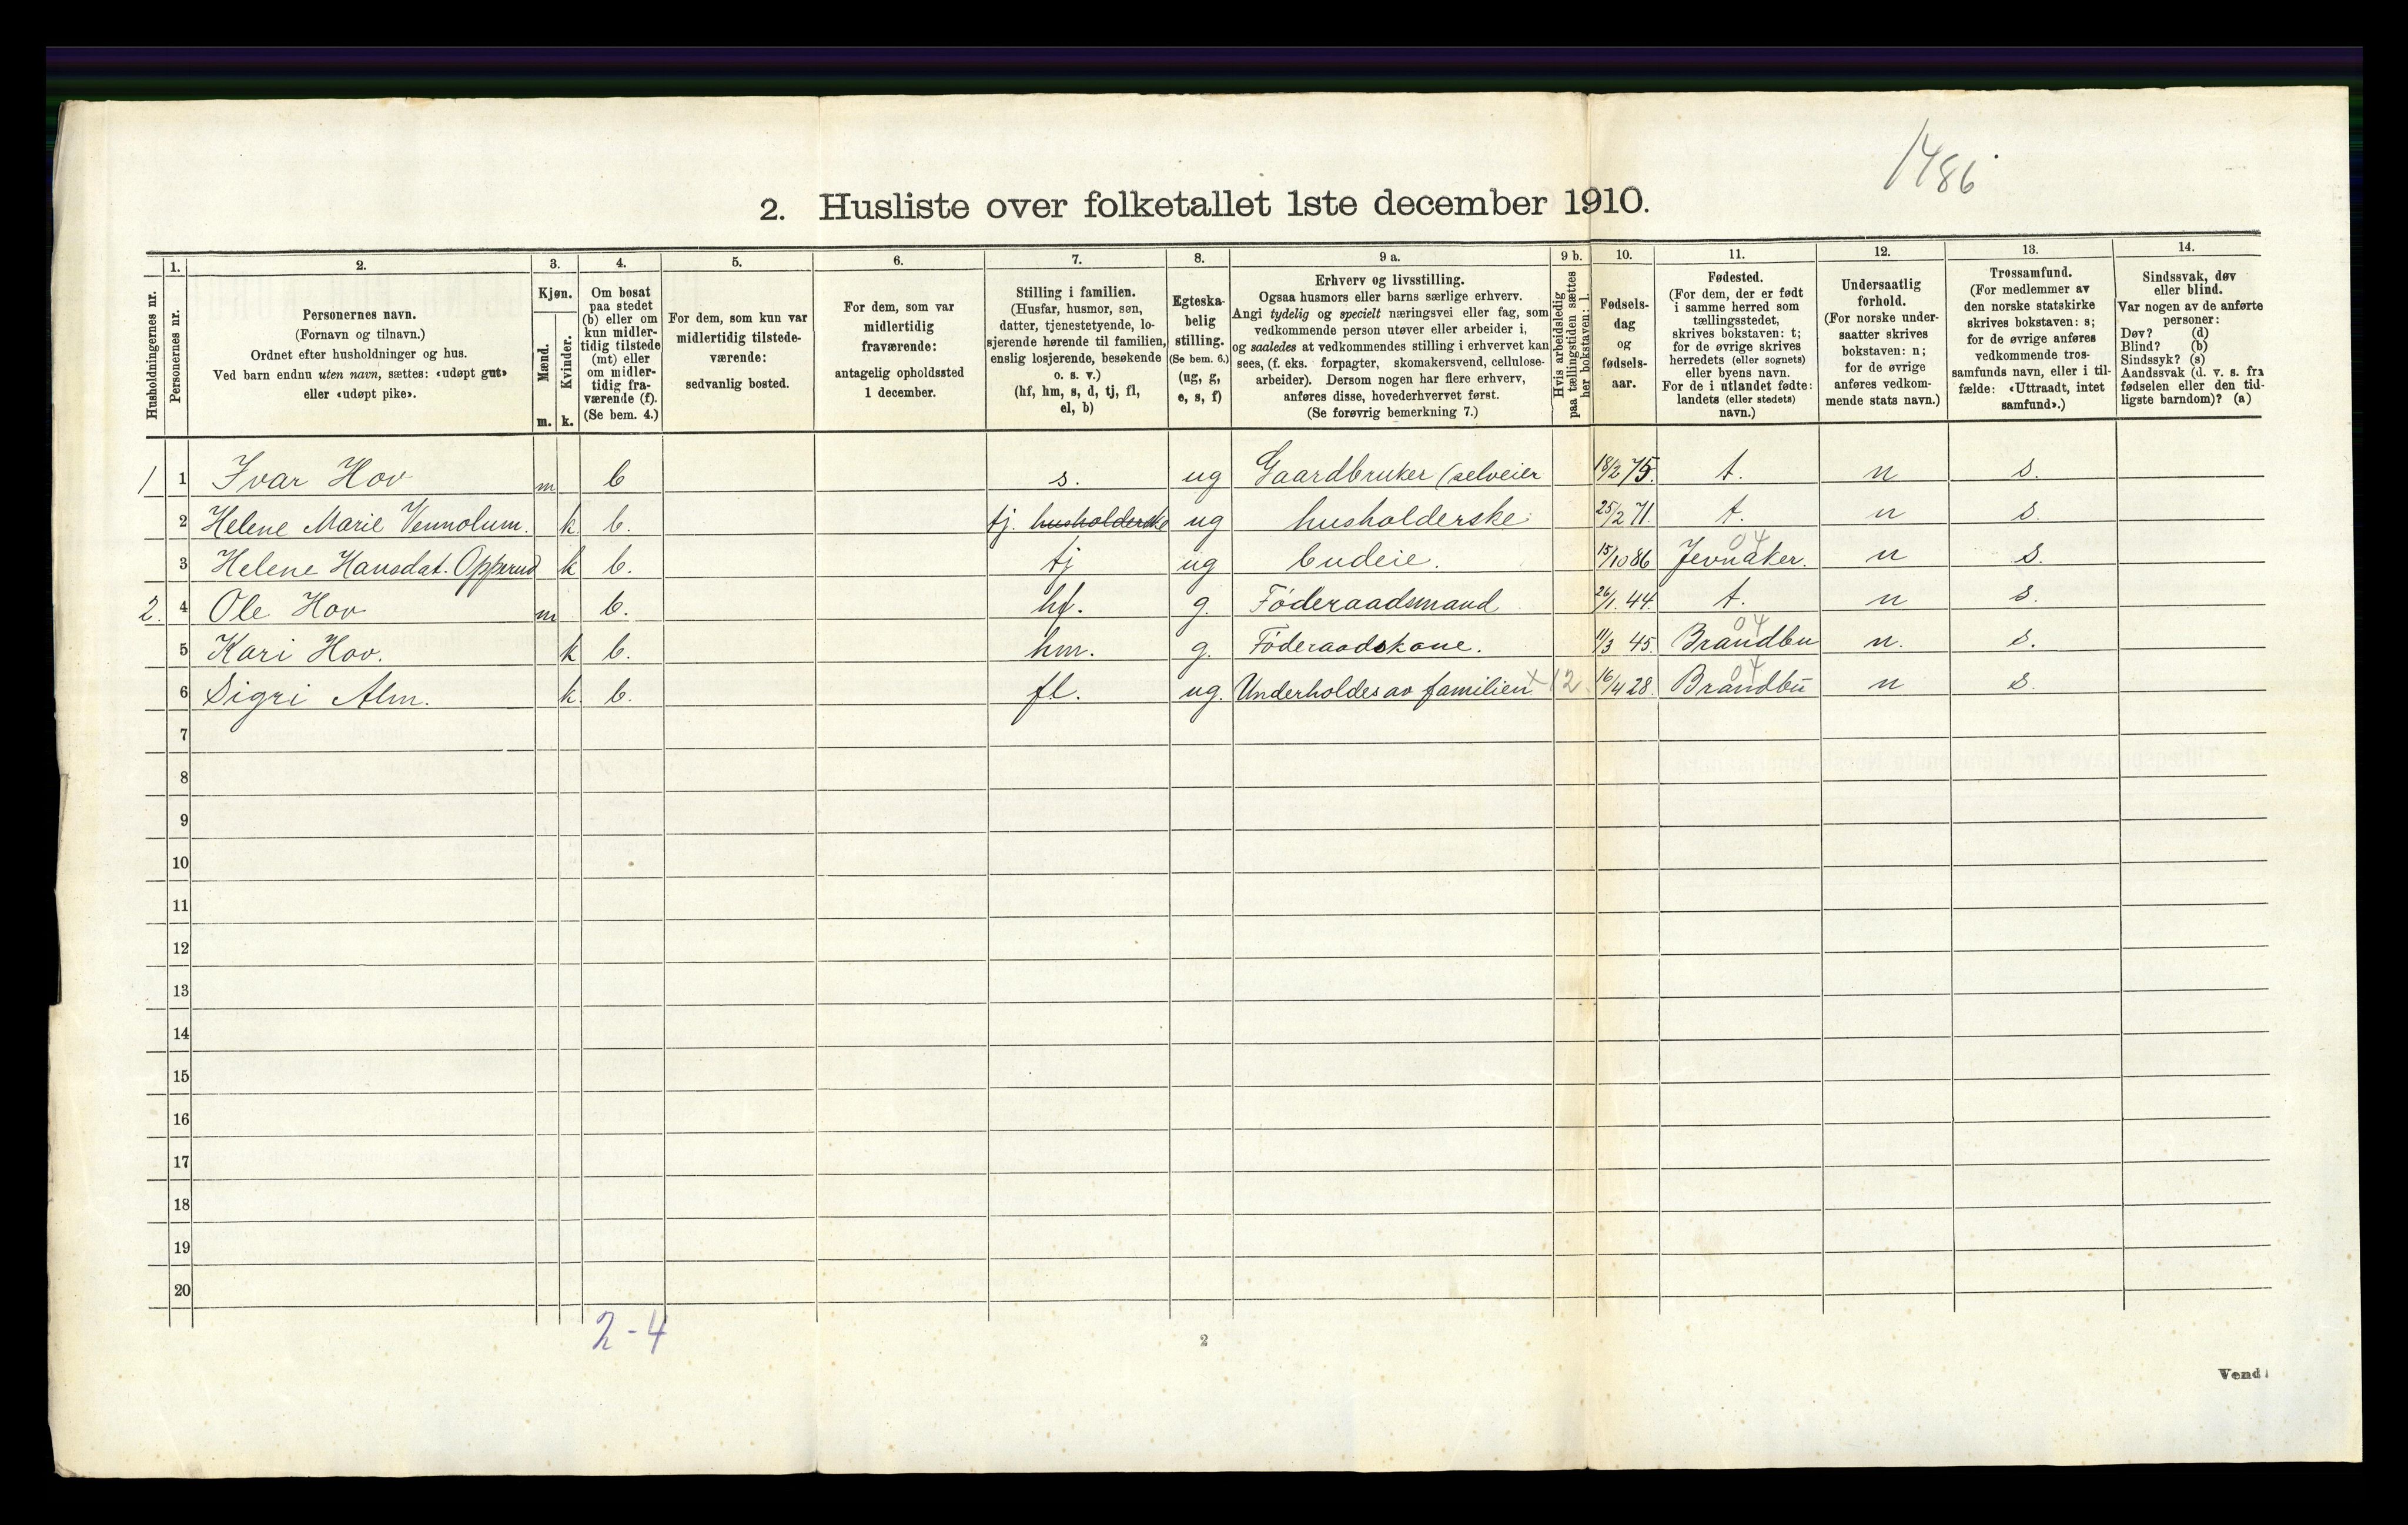 1486
2. Husliste over folketallet 1ste december 1910.
Husholdningernes nr.
1.
Personernes nr.
2.
Personernes navn.
(Fornavn og tilnavn.)
Ordnet efter husholdninger og hus.
Ved barn endnu uten navn, sættes: «udøpt gut»
eller «udøpt pike».
3.
Kjøn.
Mænd.
Kvinder.
m. k.
4.
Om bosat
paa stedet
(b) eller om
kun midler-
tidig tilstede
(mt) eller
om midler-
tidig fra-
værende (f).
(Se bem. 4.)
5.
For dem, som kun var
midlertidig tilstede-
værende:
sedvanlig bosted.
6.
For dem, som var
midlertidig
fraværende:
antagelig opholdssted
1 december.
7.
Stilling i familien.
(Husfar, husmor, søn,
datter, tjenestetyende, lo-
sjerende hørende til familien,
enslig losjerende, besøkende
o. s. v.)
(hf, hm, s, d, tj, fl,
el, b)
8.
Egteska-
belig
stilling.
(Se bem. 6.)
(ug, g,
e, s, f)
9 a.
Erhverv og livsstilling.
Ogsaa husmors eller barns særlige erhverv.
Angi tydelig og specielt næringsvei eller fag, som
vedkommende person utøver eller arbeider i,
og saaledes at vedkommendes stilling i erhvervet kan
sees, (f. eks. forpagter, skomakersvend, cellulose-
arbeider). Dersom nogen har flere erhverv,
anføres disse, hovederhvervet først.
(Se forøvrig bemerkning 7.)
9 b.
Hvis arbeidsledig
paa tællingstiden sættes
her bokstaven: l.
10.
Fødsels-
dag
og
fødsels-
aar.
11.
Fødested.
(For dem, der er født
i samme herred som
tællingsstedet,
skrives bokstaven: t;
for de øvrige skrives
herredets (eller sognets)
eller byens navn.
For de i utlandet fødte:
landets (eller stedets)
navn.)
12.
Undersaatlig
forhold.
(For norske under-
saatter skrives
bokstaven: n;
for de øvrige
anføres vedkom-
mende stats navn.)
13.
Trossamfund.
(For medlemmer av
den norske statskirke
skrives bokstaven: s;
for de øvrige anføres
vedkommende tros-
samfunds navn, eller i til-
fælde: «Uttraadt, intet
samfund».)
14.
Sindssvak, døv
eller blind.
Var nogen av de anførte
personer:
Døv? (d)
Blind? (b)
Sindssyk? (s)
Aandssvak (d. v. s. fra
fødselen eller den tid-
ligste barndom)? (a)
1 1 Ivar Hov m b s. ug Gaardbruker (selveier 18/2 75. t. n s.
2 Helene Marie Vennolum. k b. tj. husholderske ug husholderske 25/2 71. t. n s.
04
3 Helene Hansdat. Opperud k b. tj ug budeie. 15/10 86 Jevnaker. n s.
2. 4 Ole Hov m b. hf. g. Föderaadsmand 26/1. 44. t. n s.
04
5 Kari Hov. k b. hm. g. Föderaadskone. 11/3 45. Brandbu n. s.
04
6 Sigri Alm. k. b. fl. ug. Underholdes av familien x 12 16/4 28. Brandbu n s.
7
8
9
10
11
12
13
14
15
16
17
18
19
20
2-4
2
Vend!